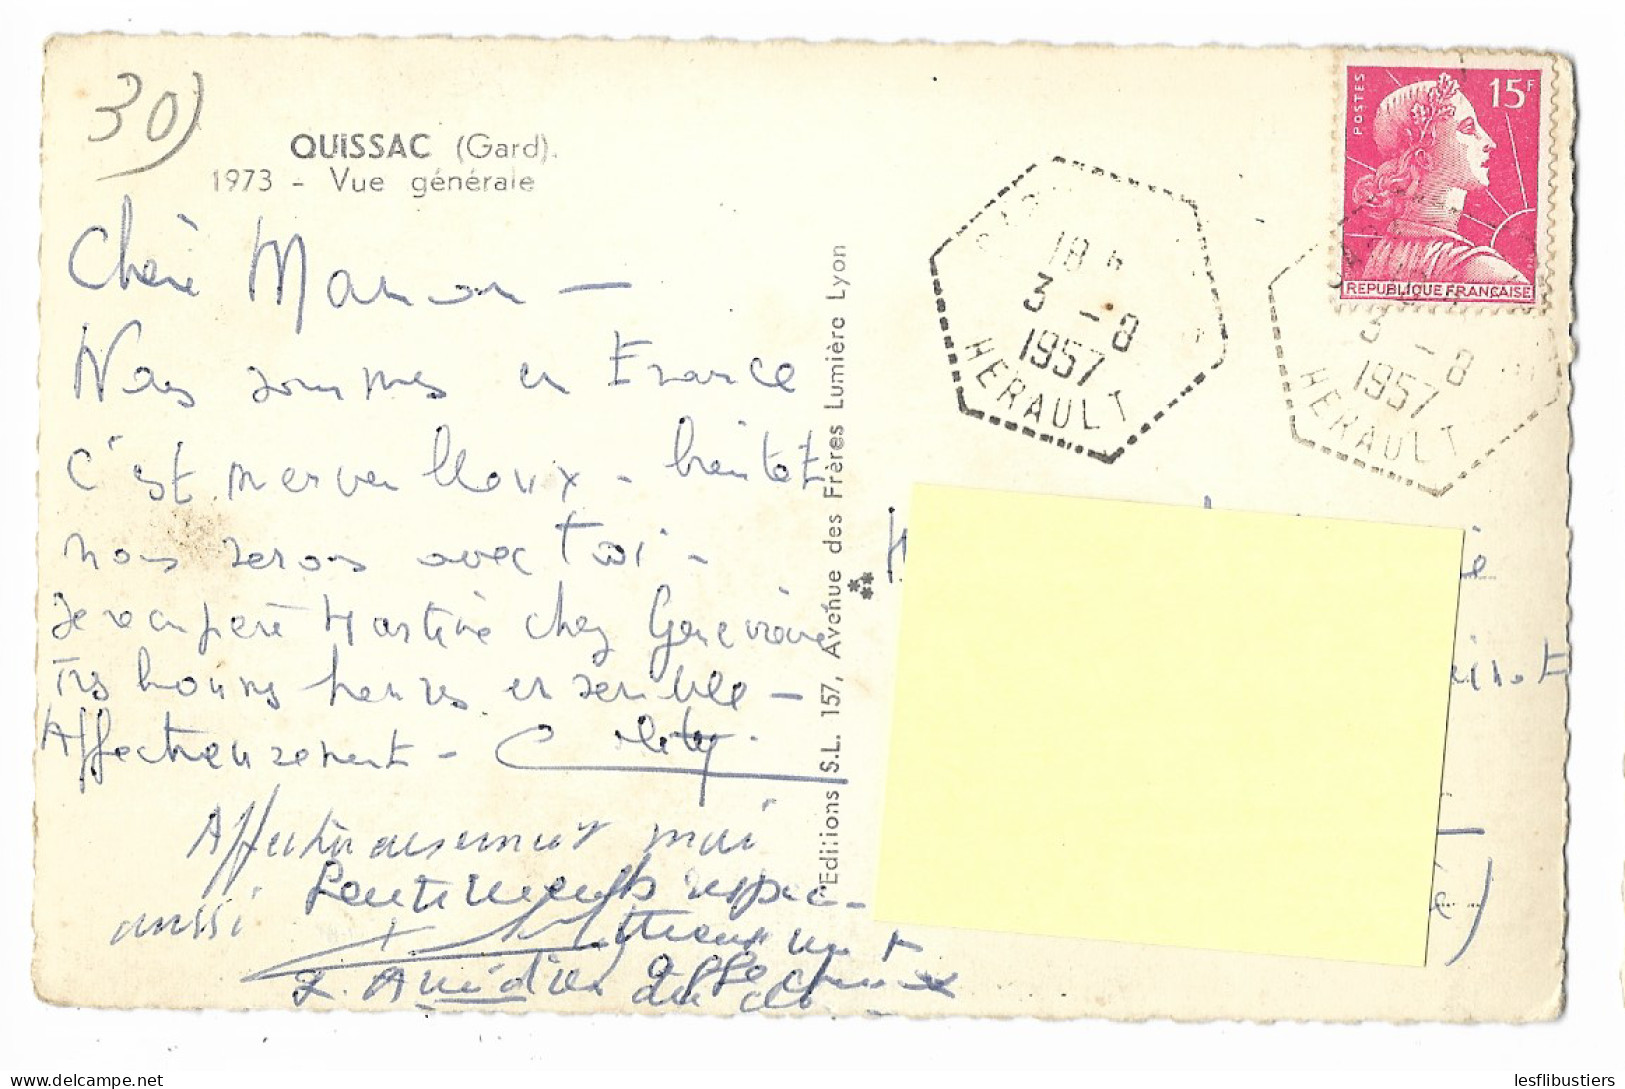 30)
QUISSAC (Gard).
1973 - Vue générale
Chère Manon —
Nous sommes en France
c'est merveilleux - bientot
nous serons avec toi -
Je récupère Martine chez Geneviève
Très bonnes heures ensemble -
Affectueusement -
Affectueusement moi
aussi
Sentiments respec-
tueux et
affectueux
Editions S.L. 157, Avenue des Frères Lumière Lyon
POSTES
15F
REPUBLIQUE FRANÇAISE
18 H
3 - 8
1957
HERAULT
3 - 8
1957
HERAULT
lesflibustiers